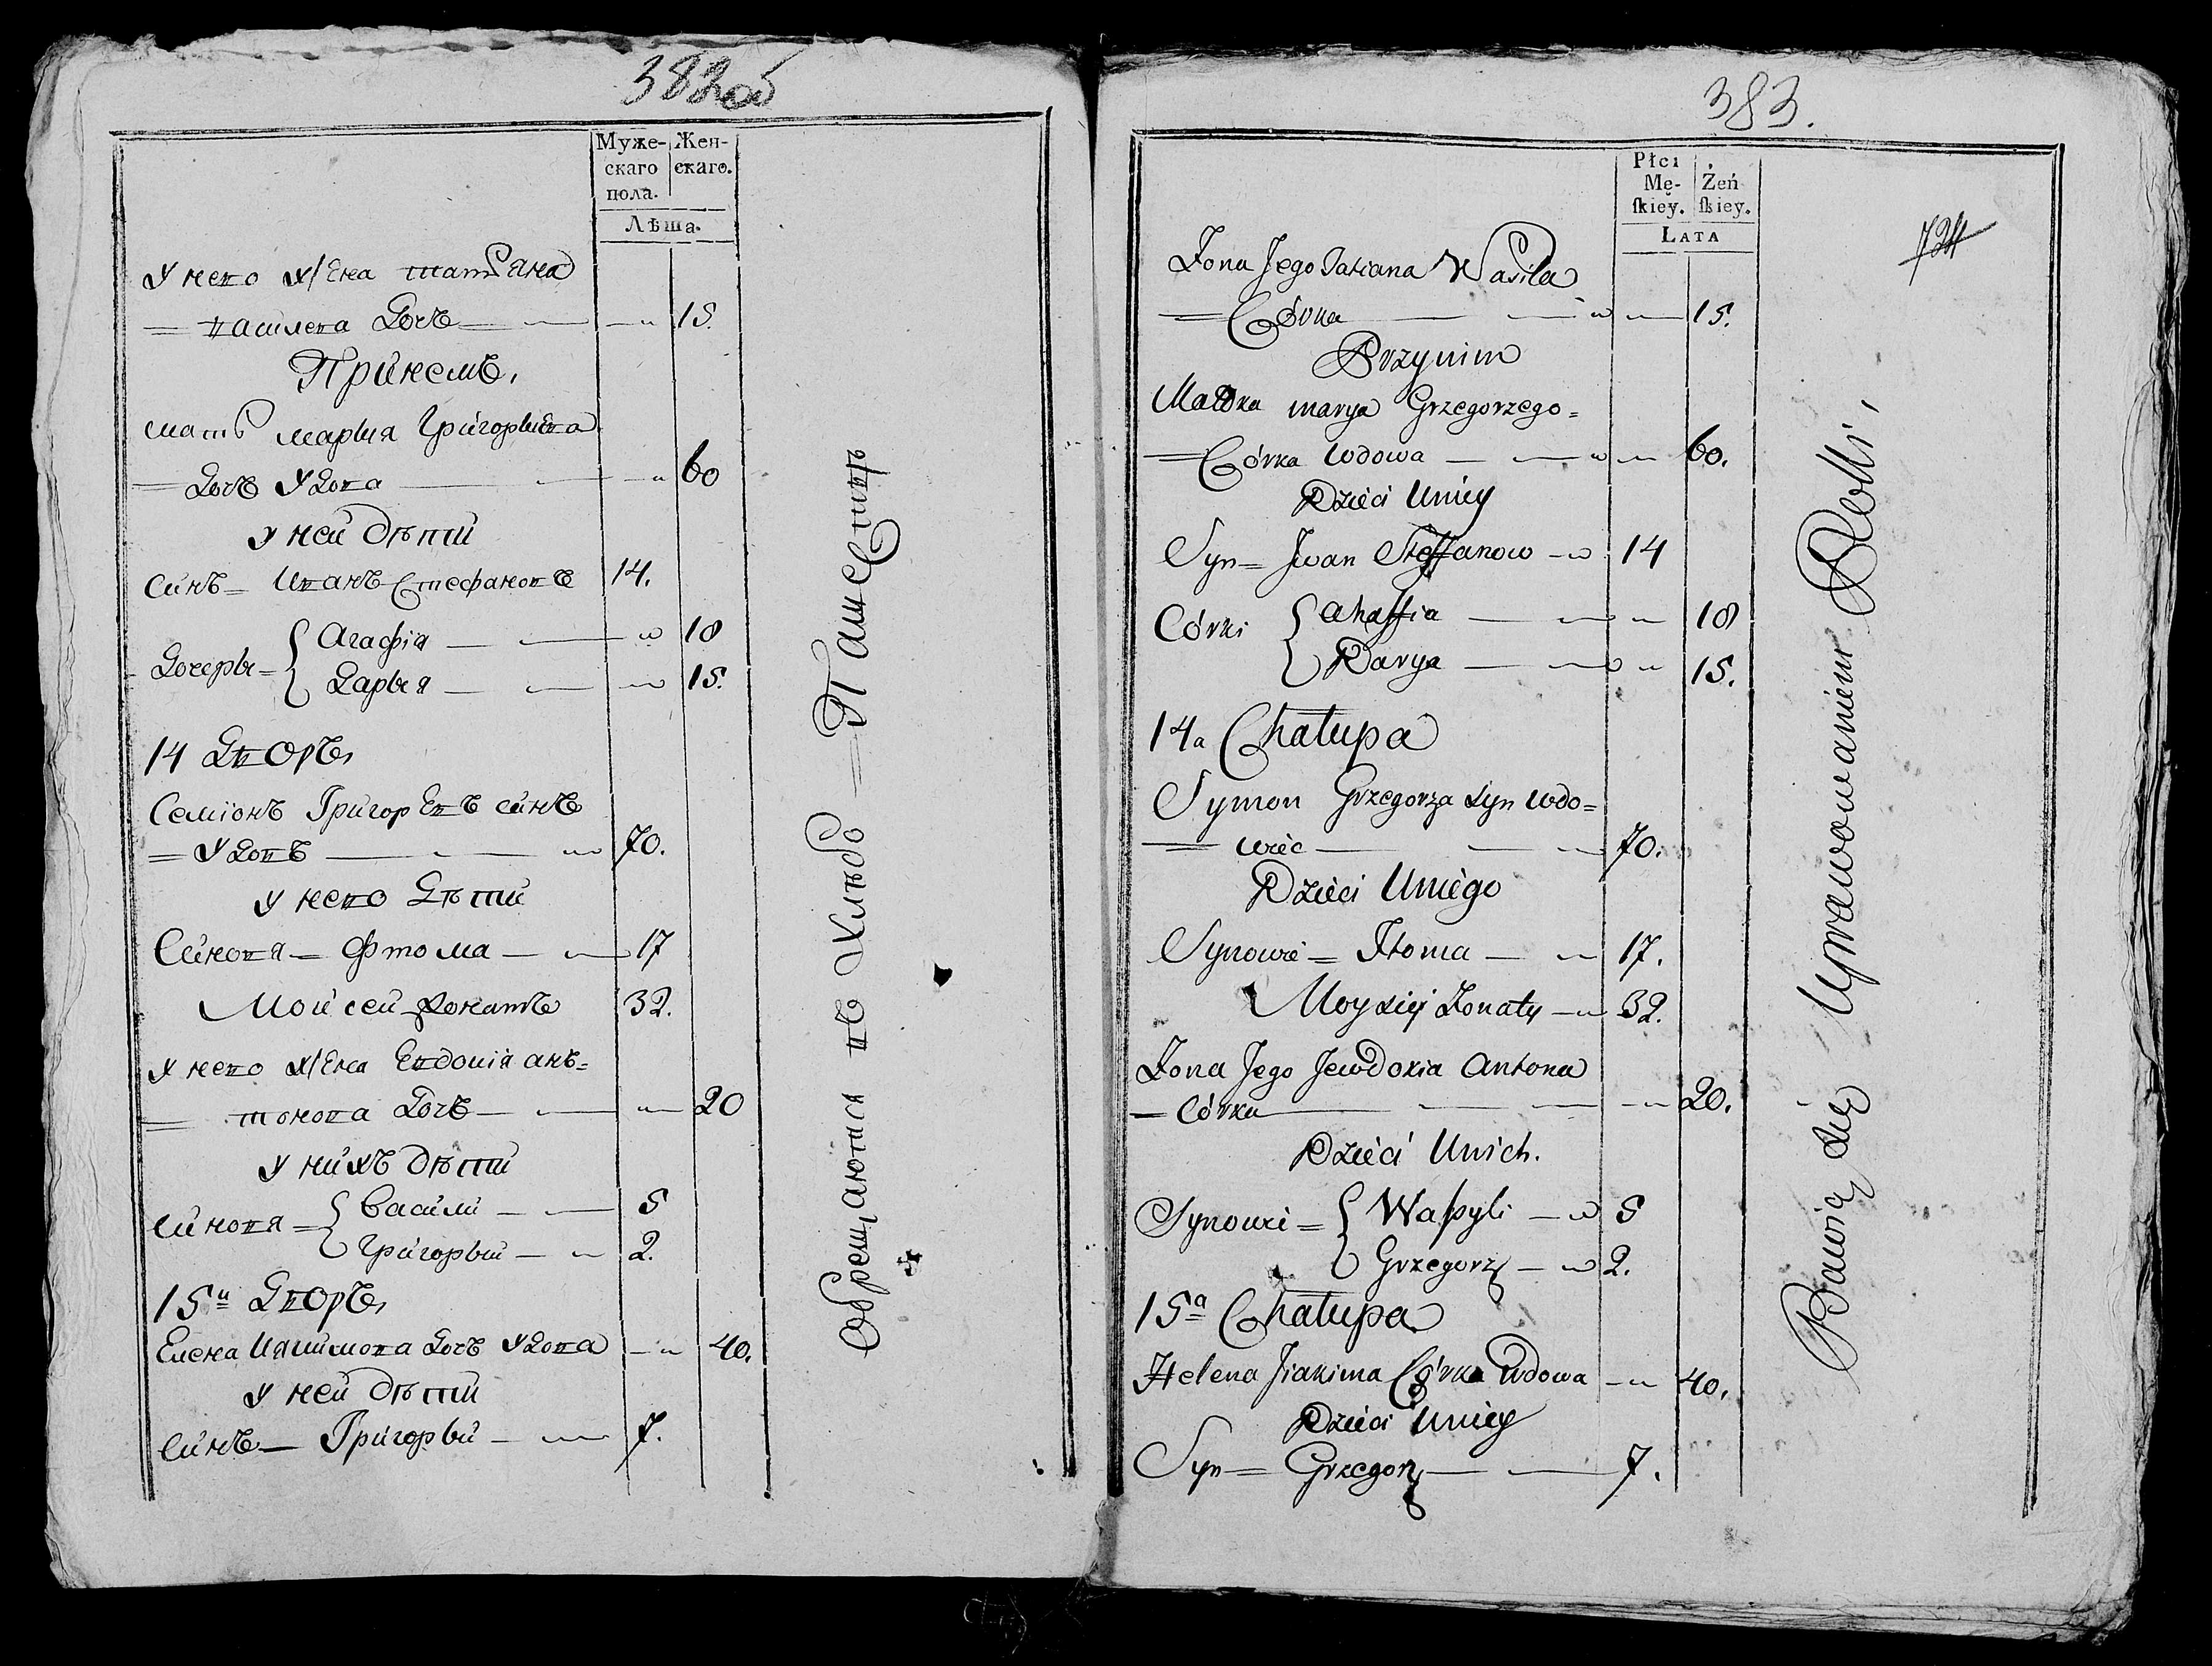 382об
Муже-
скаго
пола.
Жен-
скаго.
Лѣта.
У него жена татьяна
= василева Дочь 15.
При немъ,
мать марья Григорьева
= Дочь Удова 60
У ней дѣти
Синъ = Иванъ Стефановъ 14.
Дочеры = { Агафія 18
Дарья 15.
14 Дворъ,
Семіонъ Григоревъ синъ
= Удовъ 70.
У него Дѣти
Синовя = Фтома 17
Мойсей Жонатъ 32.
У него жена Евдокія анъ=
= тонова Дочь 20
У нихъ дѣти
синовя = { Васили 5
Григорьи 2.
15й Дворъ,
Елена Иякимова Дочь Удова 40.
У ней дѣти
Синъ = Григорьи 7.
Обрещаются въ Хлѣбо = Пашествѣ
383.
Płci
Mę-
skiey.
Żeń
skiey.
LATA
724
Zona Jego Tatiana Wasila
= Córka 15.
Przynim
Matka marya Grzegorzego =
= Córka wdowa 60.
Dzieci Uniey
Syn = Jwan Steffanow 14
Córki { Ahaffia 18
Darya 15.
14a Chałupa
Symon Grzegorza syn wdo=
= wiec 70.
Dzieci Uniego
Synowie = Ftoma 17.
Moysiy Zonaty 32.
Zona Jego Jewdokia Antona
= Córka 20.
Dzieci Unich.
Synowie = { Wasyli 5
Grzegorz 2.
15a Chałupa
Helena Jiakima Córka wdowa 40.
Dzieci Uniey
Syn = Grzegorz 7.
Bawią się Uprawowaniem Rolli,